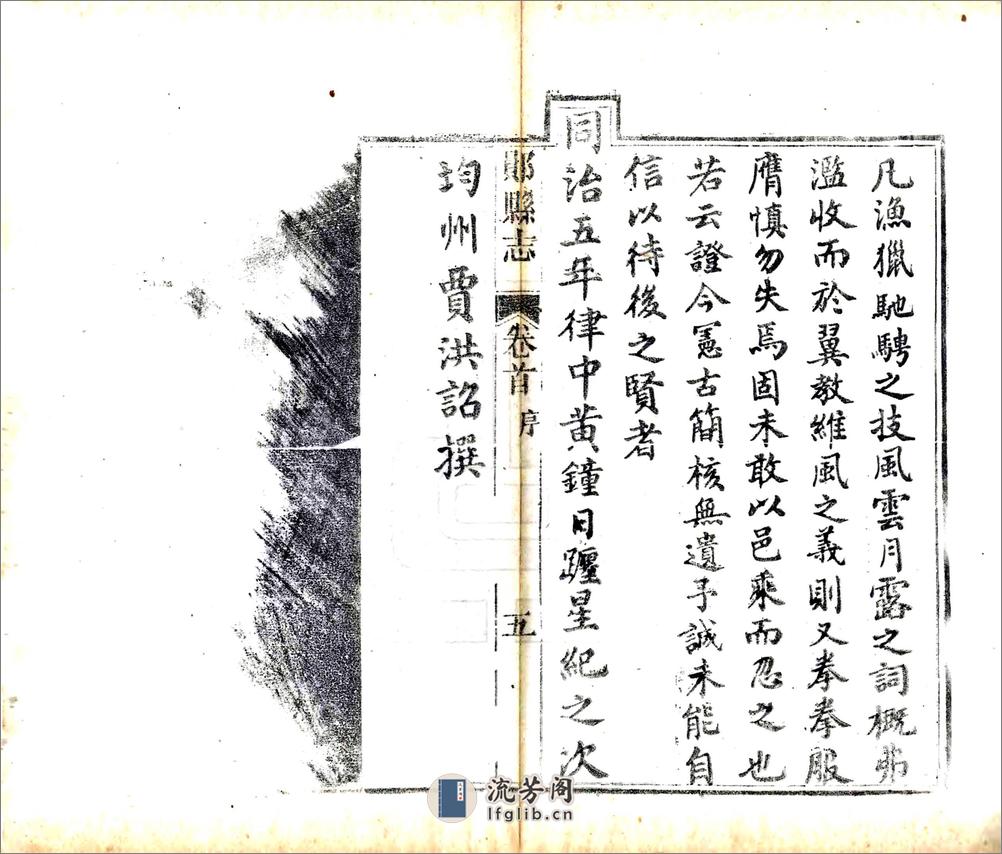 凡漁獵馳騁之技風雲月露之詞概弗
濫收而於翼教維風之義則又拳拳服
膺慎勿失焉固未敢以邑乘而忽之也
若云證今憲古簡核無遺予誠未能自
信以待後之賢者
同治五年律中黄鐘日躔星紀之次
鄖縣志 卷首 序 五
均州賈洪詔撰
流芳阁
lfglib.cn